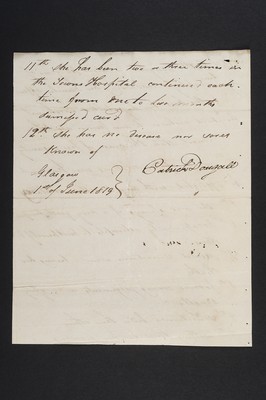 11th She has been two or three times in
the Towns Hospital continued each
time from one to two months
dismissed cured
12th She has no disease nor sores
known of
Glasgow
1st of June 1819
Patrick Dougall